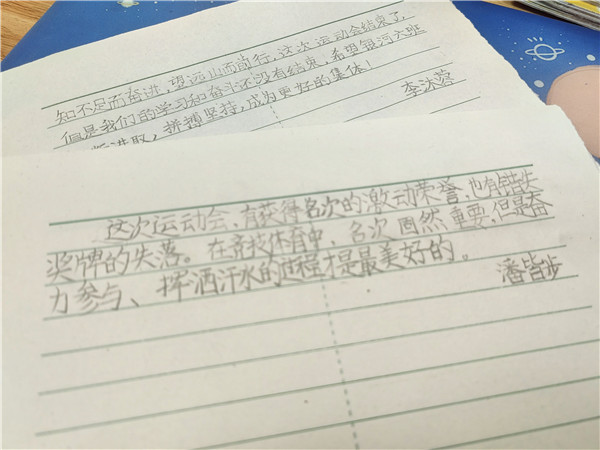 知不尽而奋进，望远山而前行。这次运动会结束了，
但是我们的学习和奋斗不没有结束，希望银河六班
进取，拼搏坚持，成为更好的集体！
李沐蓉
这次运动会，有获得名次的激动荣誉，也有错失
奖牌的失落。在竞技体育中，名次固然重要，但是奋
力参与、挥洒汗水的过程才是最美好的。
潘皆